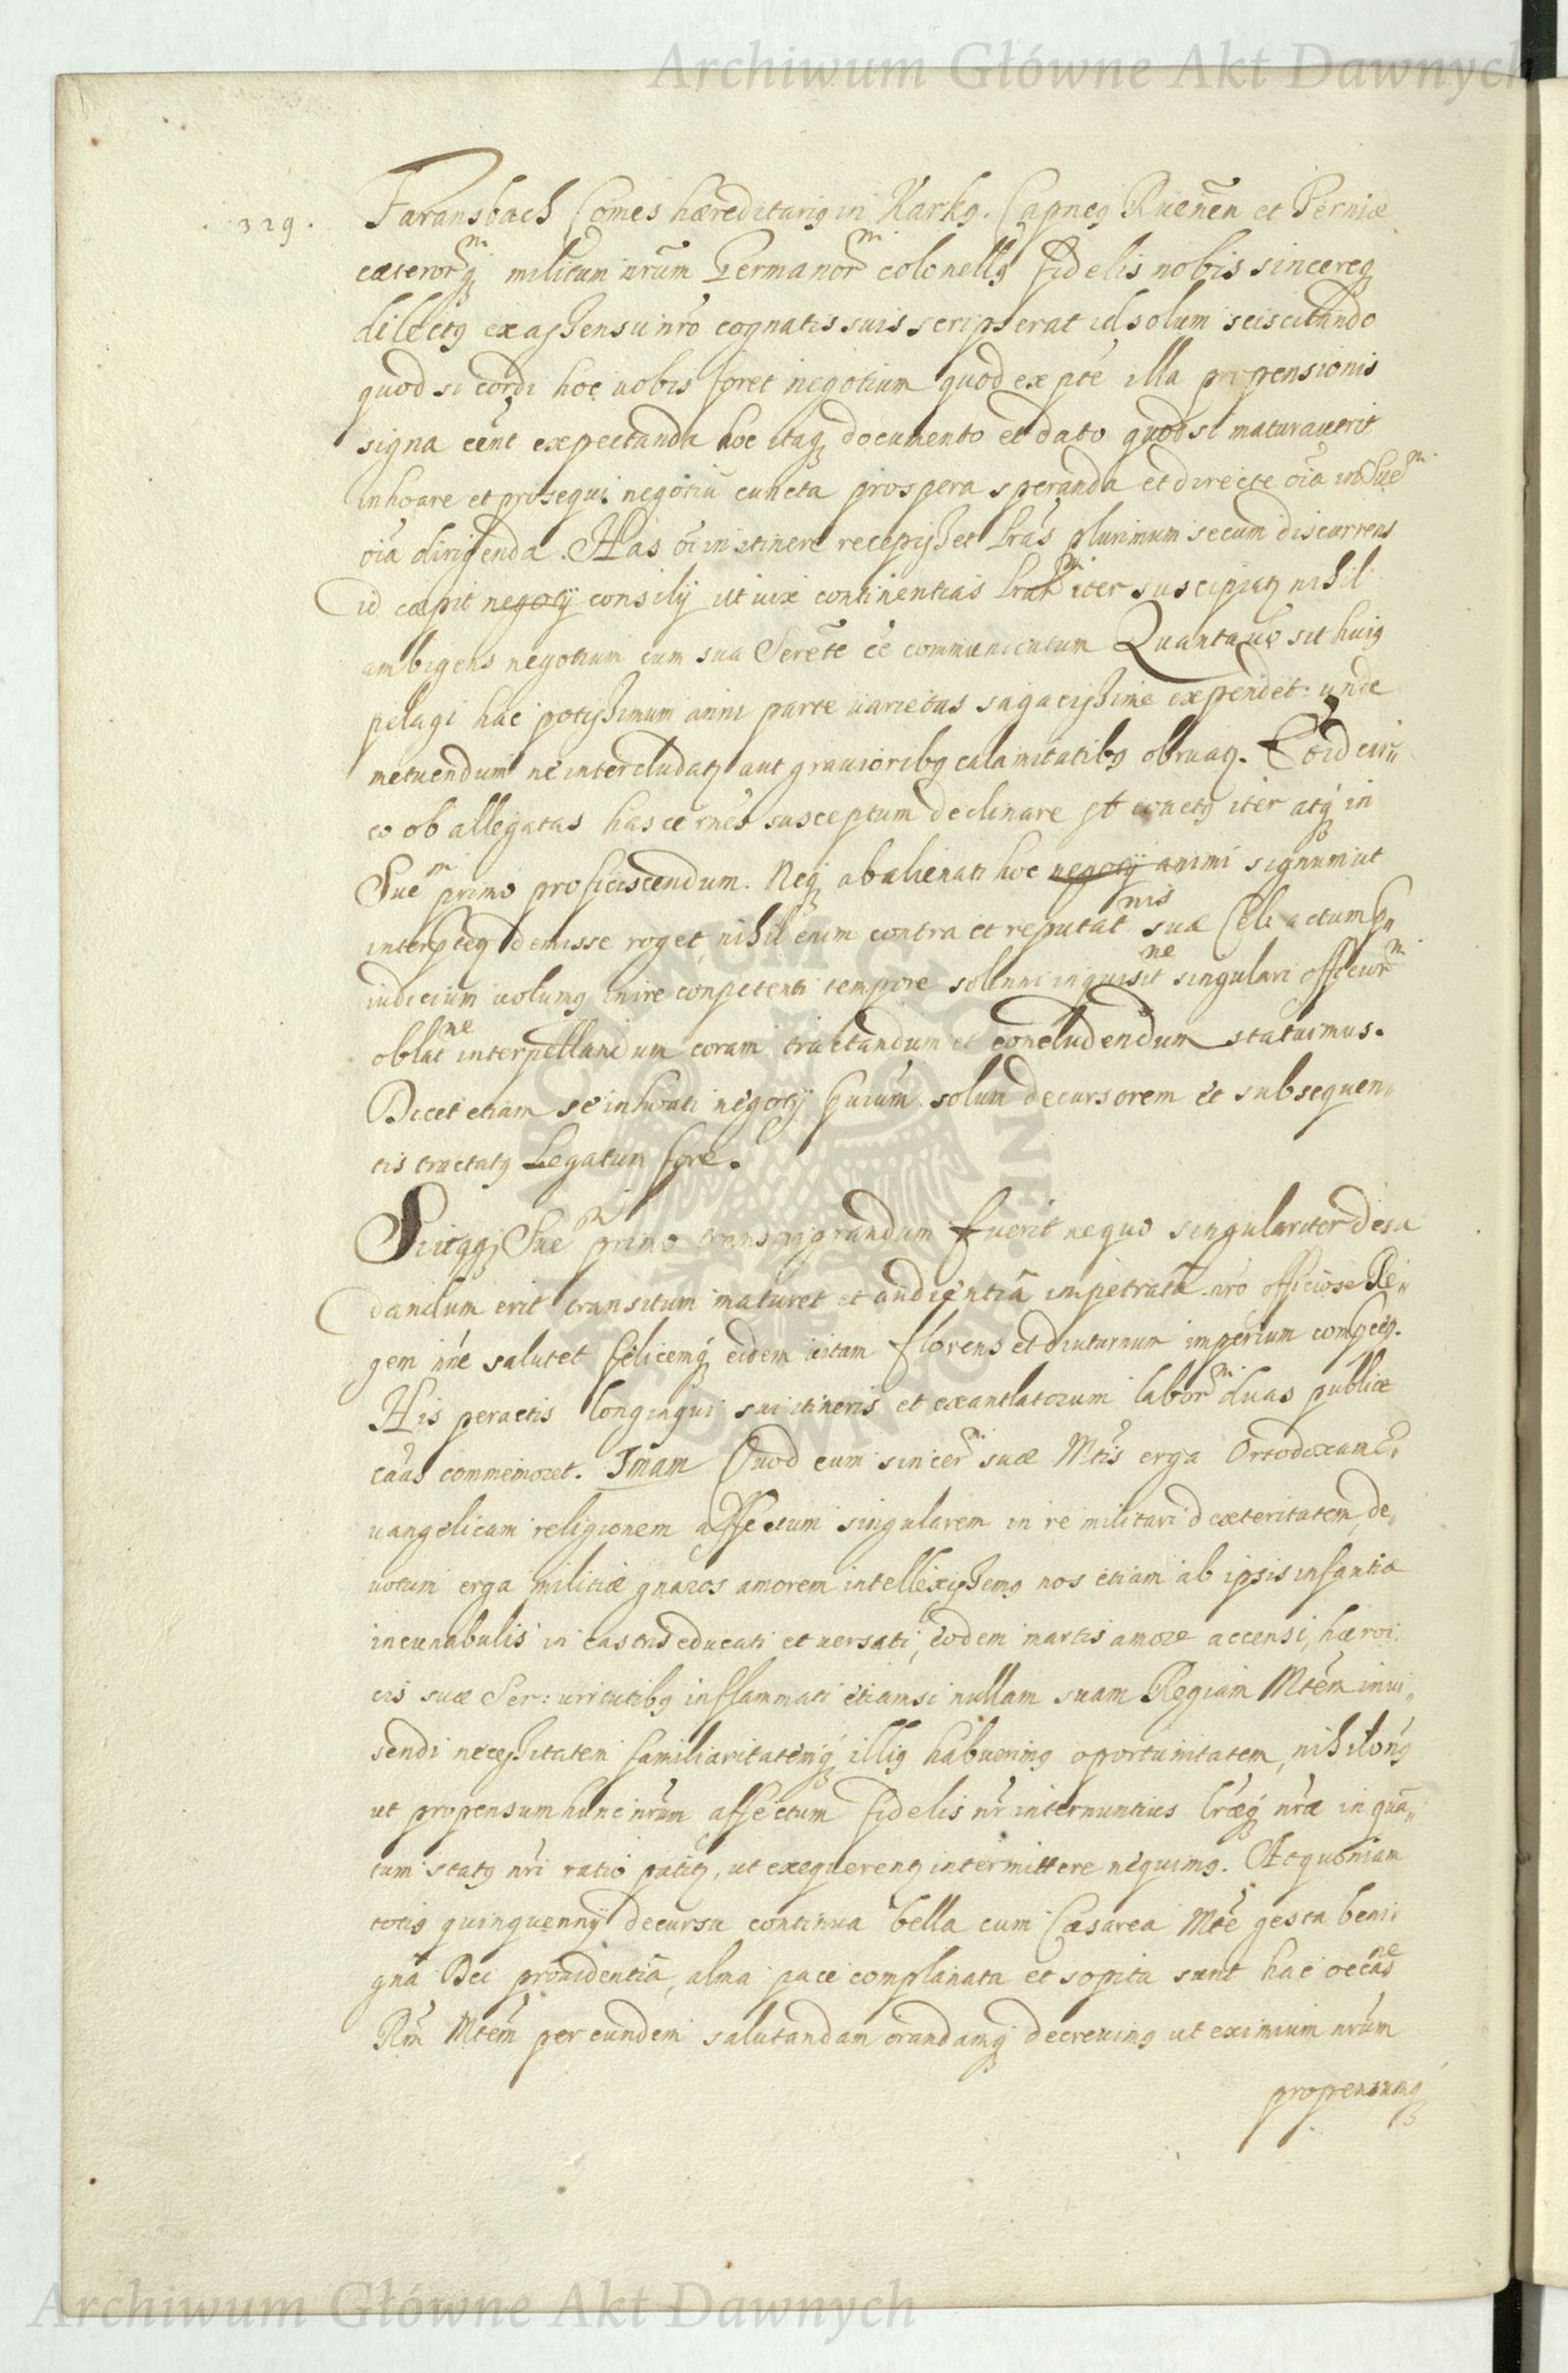 Archiwum Główne Akt Dawnych
329. Faransbach Comes hæreditariꝯ in Karkꝯ. Capneꝯ Ruēnen et Perniæ
cæterorᵐqꝫ militum nr̄um Germanorᵐ colonellꝯ fidelis nobis sincereqꝫ
dilectꝯ ex assensu nr̄o cognatis suis scripserat id solum sciscitando
quod si cordi hoc nobis foret negotium quod ex pte illa propensionis
signa eēnt expectanda hoc itaqꝫ documento et dato quod si maturaverit
inhoare et prosequi negotiū cuncta prospera speranda et directe oīa in Sueᵐ
oīa dirigenda. Has in itinere recepisset Lr̄as plurimum secum discurrens
id cæpit negotij consilij ut vix continentias iter suscipiatꝫ nihil
ambigens negotium cum sua Serēte cē communicatum Quanta vꝫ sit huiꝯ
pelagi hac potissimum anni parte varietas sagacissime expendet: unde
metuendum ne intercludatꝫ aut gravioribꝯ calamitatibꝯ obruatꝫ. id cir„
co ob allegatas hasce rn̄es susceptum declinare coactꝯ iter atqꝫ in
Sueᵐ primo proficiscendum. Neqꝫ abalienati hoc negotij animi signum ut
interpteꝫ demisse roget, nihil enim contra et reputatⁿⁱˢ suæ Celi actum p„
iudicium volumꝯ inire conpetenti tempore solenni inquisitⁿᵉ singulari officiorᵐ
oblatⁿᵉ interpellandum coram tractandum et concludendum statuimus.
Dicet etiam se inhoati negotij solum decursorem et subsequen„
tis tractatꝯ Legatum fore.
Si itaqꝫ Sueᵐ primo transmigrandum fuerit nequo singulariter desu
dandum erit transitum maturet et audientiā impetratā nr̄o officiose Re„
gem nīe salutet felicemqꝫ eidem vitam florens et diuturnum imperium
His peractis longinqui sui itineris et exantlatorum laborᵐ duas publice
cāas commemoret. Imam Quod cum sincerᵐ suæ Mtīs erga Ortodoxam E„
vangelicam religionem affectum singularem in re militari dexteritatem, de„
votum erga militiæ gnaros amorem intellexissemꝯ nos etiam ab ipsis infantiæ
incunabulis in castris educati et versati, eodem martis amore accensi, hæroi„
cis suæ Ser: virtutibꝯ inflammati etiamsi nullam suam Regiam Mtēm invi„
sendi necessitatem familiaritatemqꝫ illiꝯ habuerimꝯ oportunitatem, nihilonꝯ
ut propensum hunc nr̄um affectum fidelis nr̄ internuntius Lr̄æqꝫ nr̄æ in quā„
tum statꝯ nr̄i ratio patitꝫ, ut exequerenꝫ intermittere nequimꝯ. At quoniam
totiꝯ quinquennij decursu continua bella cum Cæsarea Mtē gesta beni„
gnā Dei providentiā, alma pace complanata et sopita sunt hac occasⁿᵉ
Rm̄ Mtēm per eundem salutandam orandamqꝫ decrevimꝯ ut eximium nr̄um
propensumqꝫ
Archiwum Główne Akt Dawnych